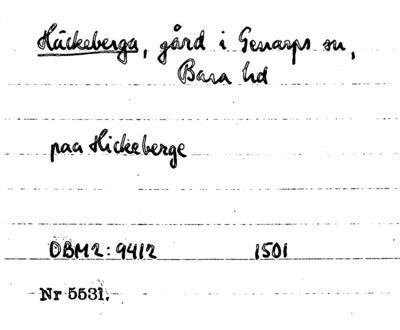 Häckeberga, gård i Genarps sn,
Bara hd
paa Hickeberge
DBM2:9412 1501
Nr 5531.